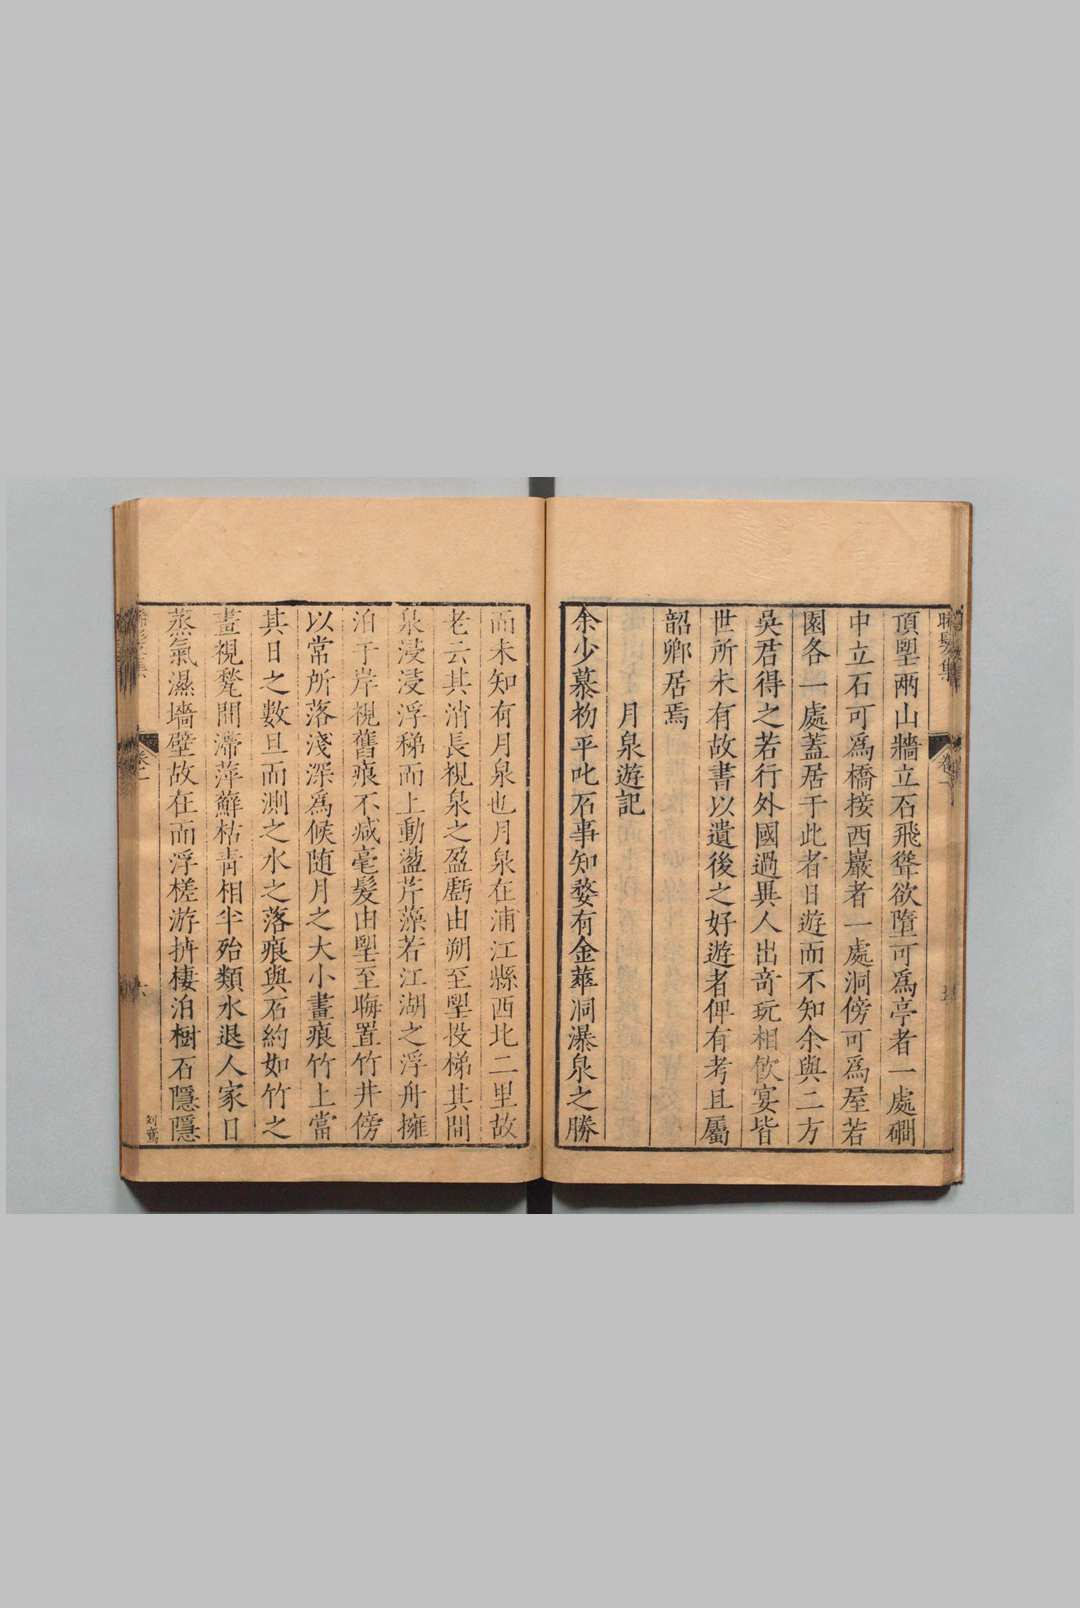 頂朢兩山牆立石飛聳欲墮可爲亭者一處磵
中立石可爲橋接西巖者一處洞傍可爲屋若
園各一處蓋居于此者日遊而不知余與二方
吳君得之若行外國過異人出奇玩相飲宴皆
世所未有故書以遺後之好遊者俾有考且屬
韶卿居焉
月泉遊記
余少慕初平叱石事知婺有金華洞瀑泉之勝
而未知有月泉也月泉在浦江縣西北二里故
老云其消長視泉之盈虧由朔至朢投梯其間
泉浸浸浮稊而上動盪芹藻若江湖之浮舟擁
泊于岸視舊痕不減毫髮由朢至晦置竹井傍
以常所落淺深爲候随月之大小畫痕竹上當
其日之數旦而測之水之落痕與石約如竹之
畫視甃間滯萍蘚枯青相半殆類水退人家日
蒸氣濕墻壁故在而浮槎游拚棲泊樹石隱隱
卷一
六
刘鸞